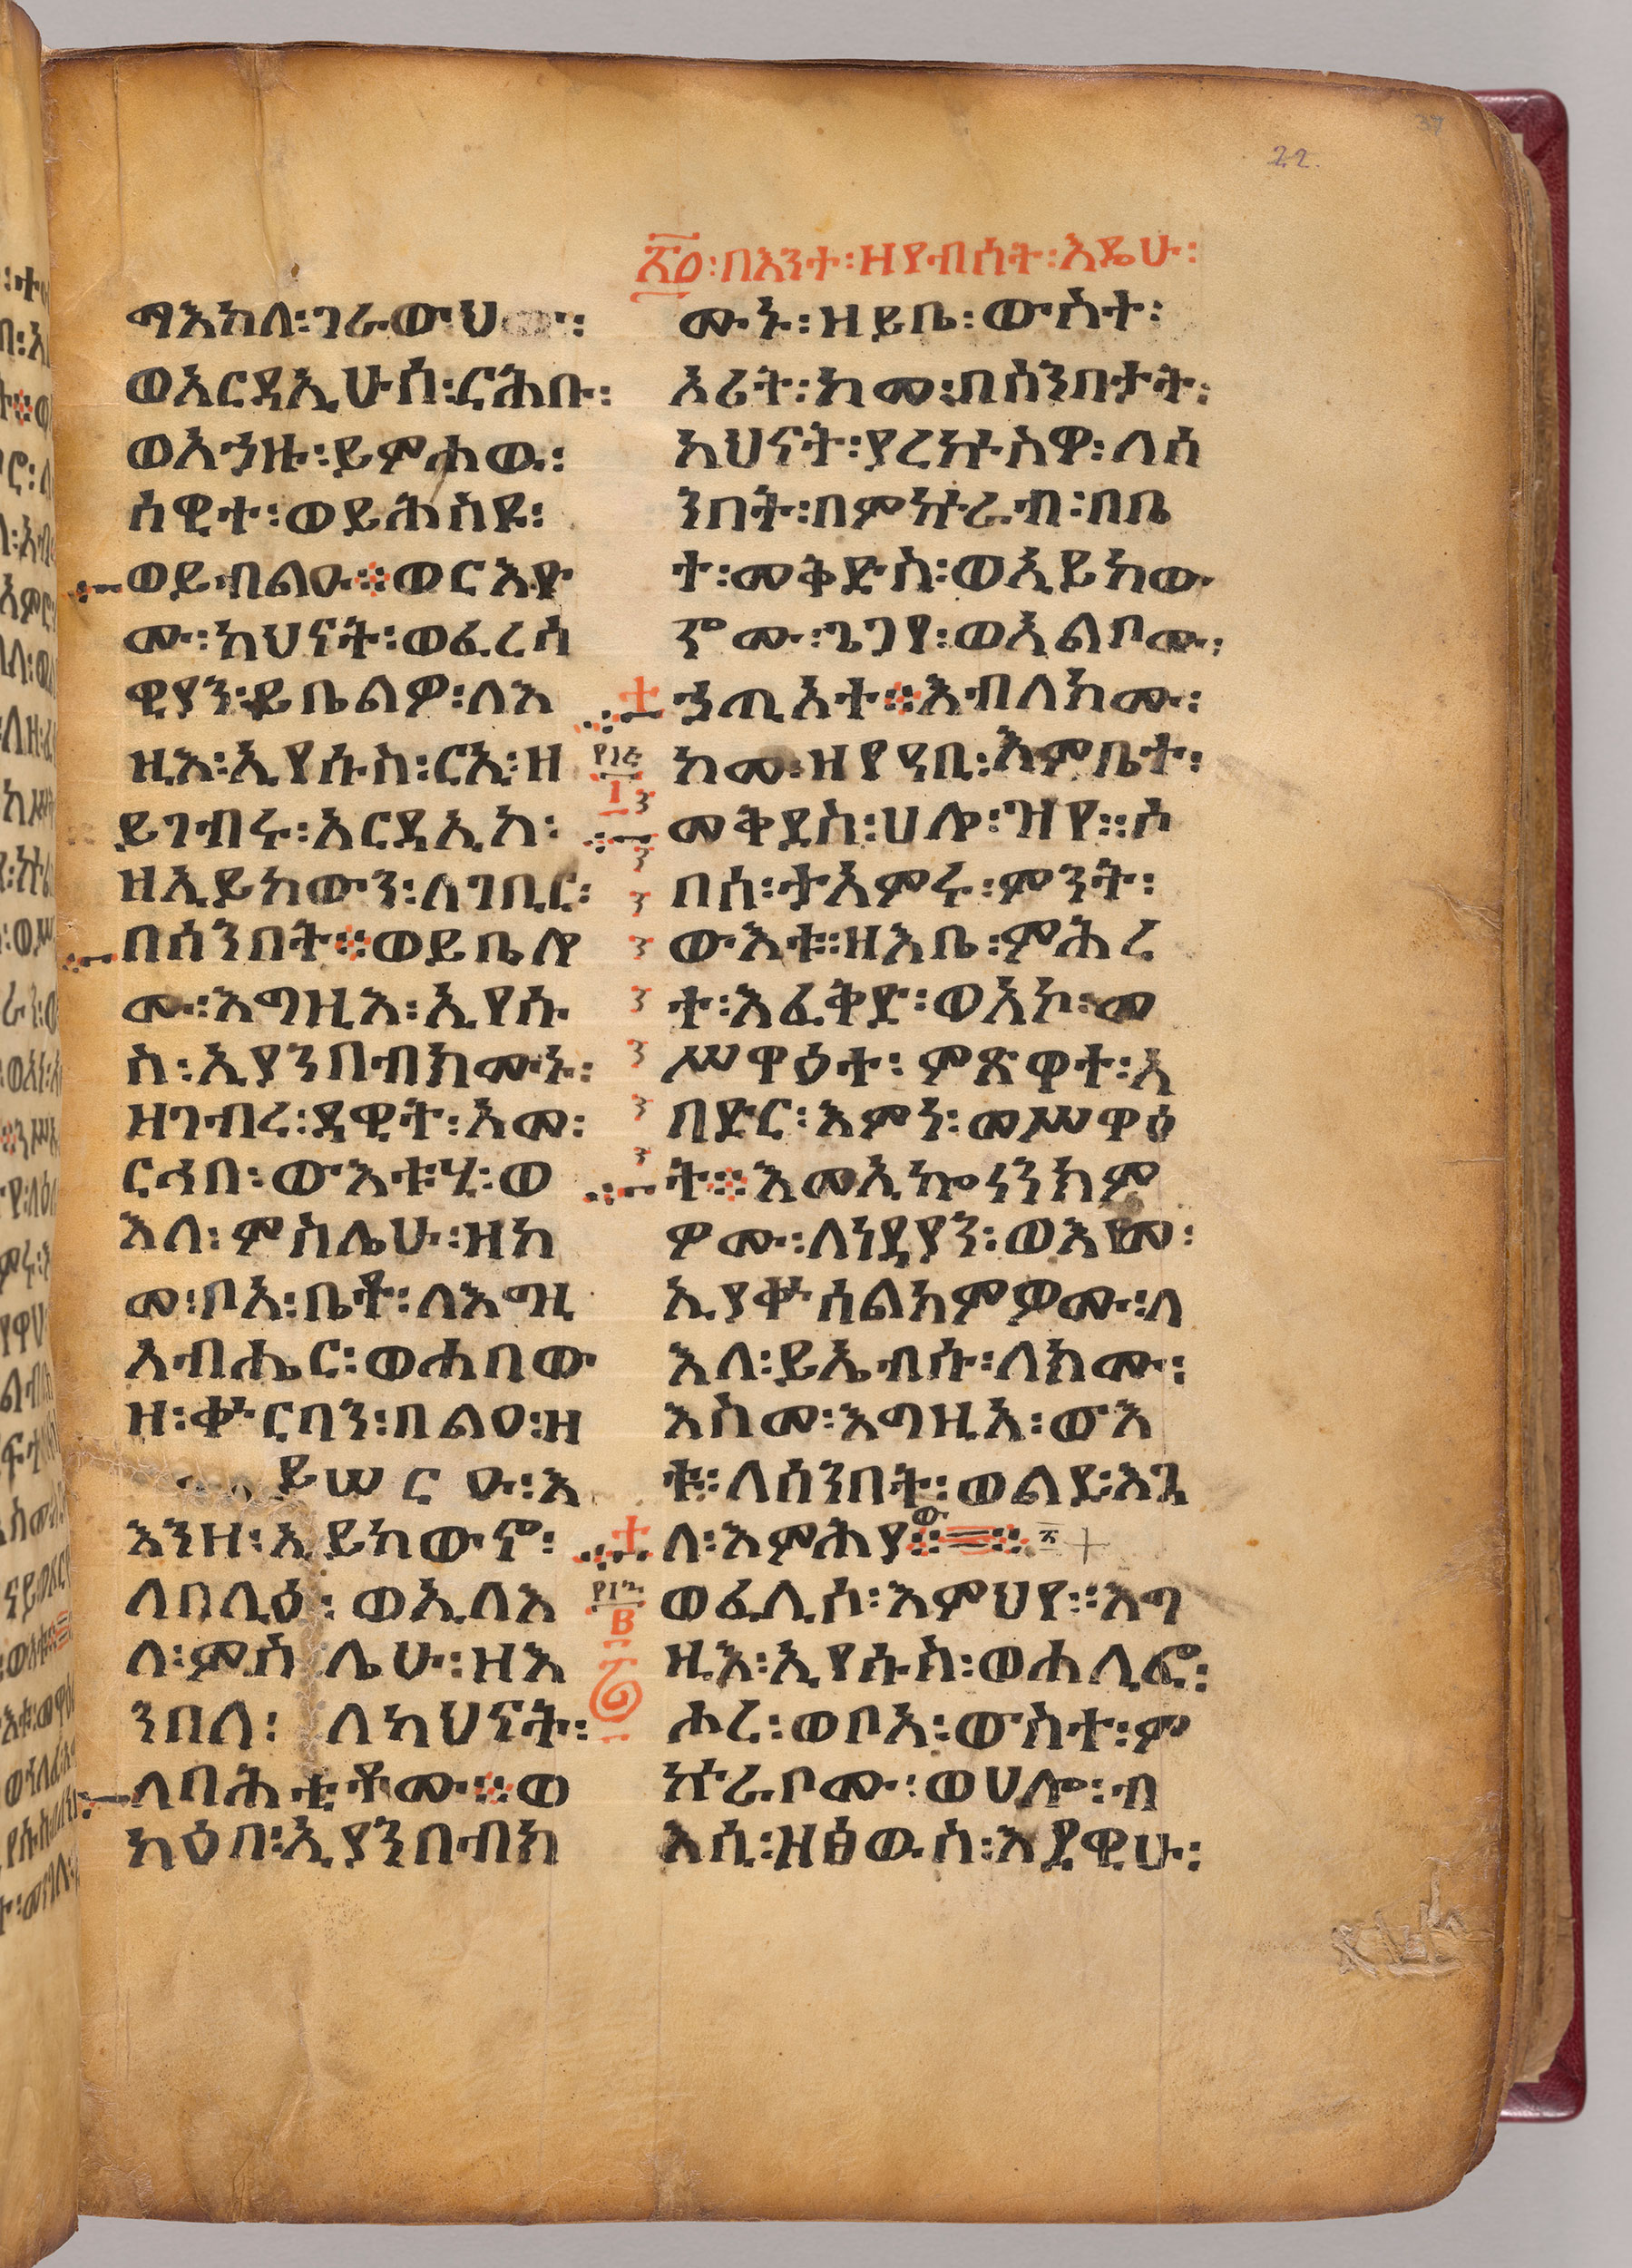 22.
፳፩፡በእንተ፡ዘየብሰት፡እዴሁ፡
ማእከለ፡ገራውህ
ወአርዳኢሁሰ፡ርሕቡ፡
ወአኀዙ፡ይምሐዉ፡
ሰዊተ፡ወይሕስዩ፡
ወይብልዑ፨ወርእዮ
ሙ፡ከህናት፡ወፈረሳ
ዊያን፡ይቤልዎ፡ለእ
ዚእ፡ኢየሱስ፡ርኢ፡ዘ
ይገብሩ፡አርዳኢከ፡
ዘኢይከውን፡ለገቢር፡
በሰንበት፨ወይቤሎ
ሙ፡እግዚእ፡ኢየሱ
ስ፡ኢያንበብክሙኑ፡
ዘገብረ፡ዳዊት፡አመ፡
ርኅበ፡ውእቱሂ፡ወ
እለ፡ምስሌሁ፡ዘከ
መ፡ቦአ፡ቤቶ፡ለእግዚ
አብሔር፡ወኅበው
ዘ፡ቍርባን፡በልዐ፡ዘ
ይሠርዑ፡እ
እንዘ፡ኢይከውኖ፡
ለበሊዕ፡ወኢለእ
ለ፡ምስሌሁ፡ዘእ
ንበለ፡ለካህናት፡
ለባሕቲቶሙ፨ወ
ካዕበ፡ኢያንበብክ
ሙኑ፡ዘይቤ፡ውስተ፡
ኦሪት፡ከመ፡በሰንበታት፡
ካህናት፡ያረኵስዋ፡ለሰ
ንበት፡በምኵራብ፡በቤ
ተ፡መቅድስ፡ወኢይከው
ኖሙ፡ጌጋየ፡ወአልቦሙ፡
ኃጢአተ፨እብለክሙ፡
ከመ፡ዘየዓቢ፡እምቤተ፡
መቅደስ፡ሀሎ፡ዝየ።ሶ
በሰ፡ታአምሩ፡ምንት፡
ውእቱ፡ዘእቤ፡ምሕረ
ተ፡እፈቅድ፡ወአኮ፡መ
ሥዋዕተ፡ምጽዋተ፡አ
በድር፡እምነ፡መሥዋዕ
ት፨እመኢኰነንክም
ዎሙ፡ለነዳያን፡ወእመ፡
ኢያቍሰልክምዎሙ፡ለ
እለ፡ይኤብሱ፡ለክሙ፡
እስመ፡እግዚአ፡ውእ
ቱ፡ለሰንበት፡ወልደ፡እጓ
ለ፡እምሕያው፨
ወፈሊሶ፡እምህየ፡እግ
ዚእ፡ኢየሱስ፡ወሐሊፎ፡
ሖረ፡ወቦአ፡ውስተ፡ም
ኵራቦሙ፡ወሀሎ፡ብ
እሲ፡ዘፅዉስ፡እደዊሁ፡